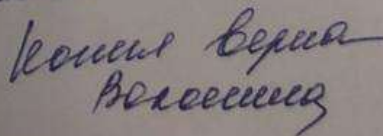 Копия верна
Волошина